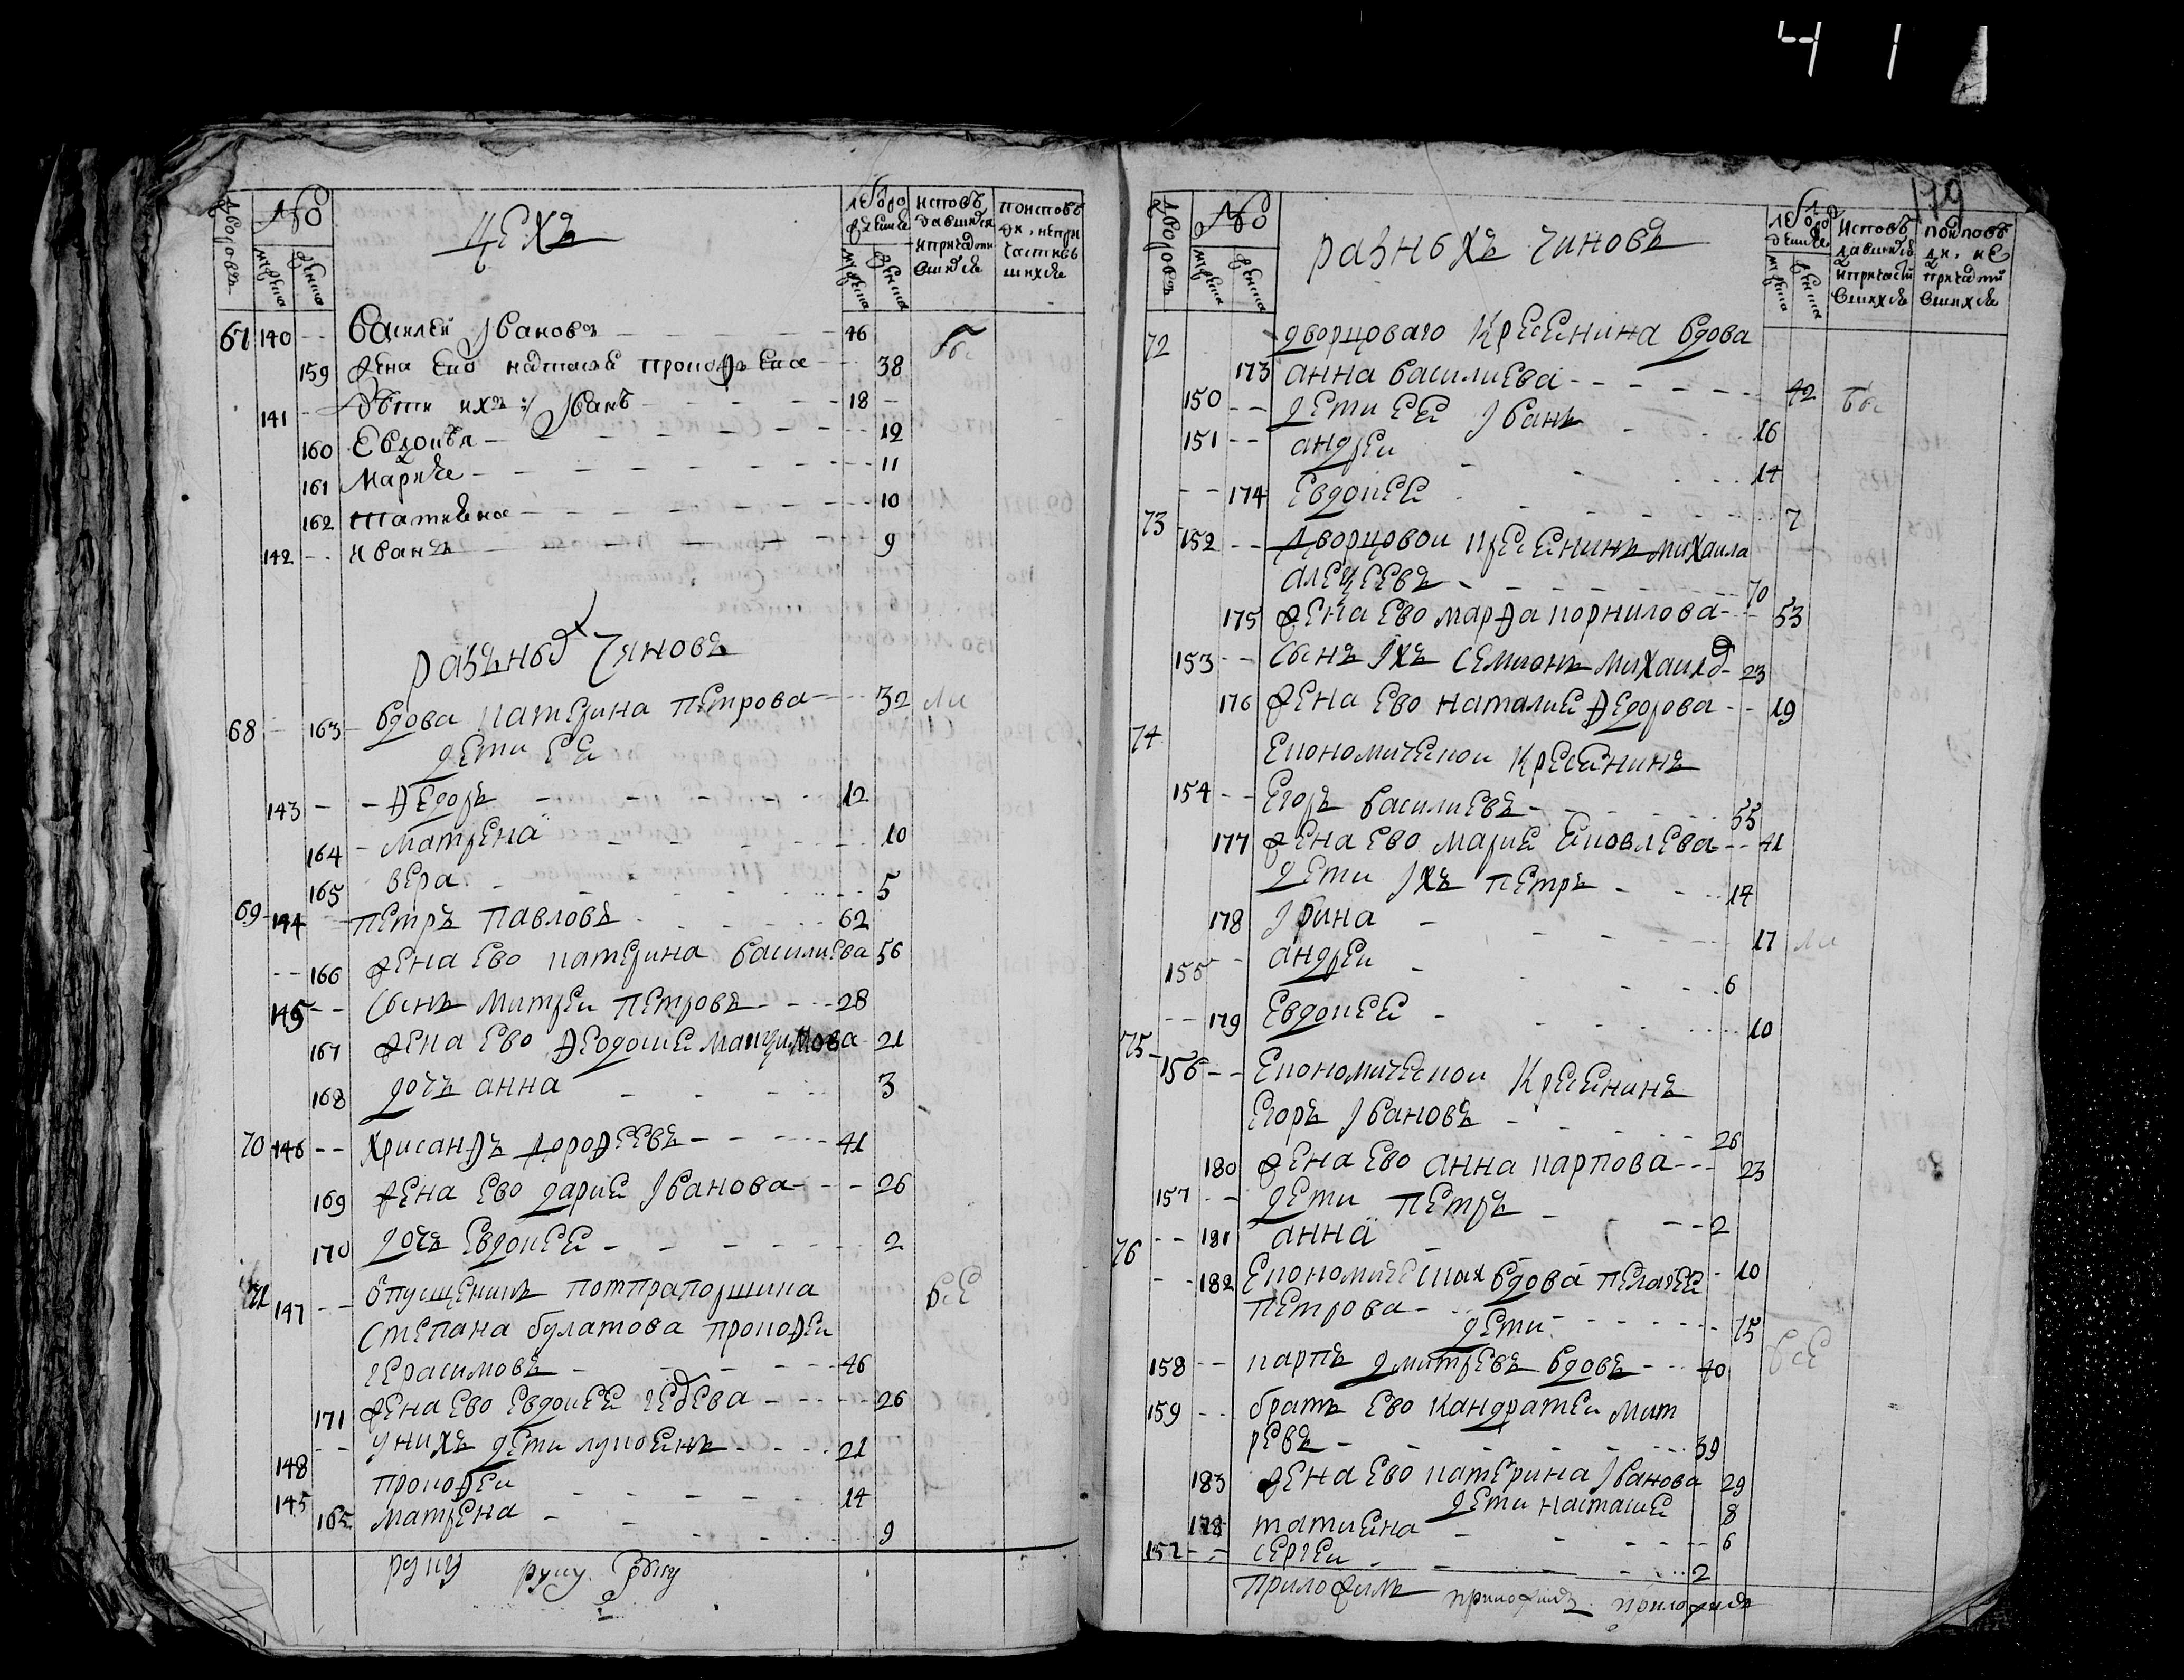 41
Дворовъ
№
мужеска
женска
Цехъ
лета рождения
мужеска
женска
исповѣдавшихся и причастившихся
по исповѣди, не причастившихся
67 140 -- василей Ивановъ - - - 46
159 жена ево настасье прокофьева -- 38
141 - Дѣти ихъ :/ Иванъ - - - 18
160 Евдокея - - - 12
161 МарИе - - - 11
162 татиена - - - 10
142 -- иванъ - - - 9
разъных чиновъ
68 -- 163 вдова катерина петрова --- 32
дети ее
143 - - федоръ - - - 12
164 - матрена - - - 10
165 вера - - - 5
69 144 петръ павловъ - - - 62
-- 166 жена ево катерина василиева 56
145 -- сынъ митреи петровъ - - - 28
167 жена ево феодосие макзимова 21
168 дочь анна - - - 3
70 146 -- хрисанфъ дорофеевъ - - - 41
169 жена ево дарие Иванова - - - 26
170 дочь Евдокее - - - 2
71 147 -- опущеникъ потпрапорщика все
степана булатова прокофеи
герасимовъ - - - 46
171 жена ево Евдокее - - - 26
148 -- у нихъ дети - - - 21
145 прокофеи - - - 14
165 матрена - - - 9
руку руку
179
Дворовъ
№
мужеска
женска
разныхъ чиновъ
лета рождения
мужеска
женска
исповѣдавшихся и причастившихся
по исповѣди, не причастившихся
72 дворцоваго кресенина вдова
173 анна василиева - - - 42
150 -- дети ее Иванъ - - - 16
151 -- андреи - - - 14
-- 174 Евдокее - - - 7
73 152 -- дворцовои кресенинъ михаила
алекзеевъ - - - 70
175 жена ево марфа корнилова -- 53
153 -- сынъ Ихъ семионъ михаило - 23
176 жена ево наталие федорова -- 19
74 Економическои кресенинъ
154 -- Егоръ василиевъ - - - 55
177 жена ево марие Яковлева -- 41
дети Ихъ петръ - - - 14
178 Ирина - - - 17
155 -- андреи - - - 6
-- 179 Евдокее - - - 10
75 156 -- Економическои кресенинъ
Егоръ Ивановъ - - - 26
180 жена ево анна карпова --- 23
157 -- дети петръ - - - 2
-- 181 анна
76 -- 182 Економическая вдова пелагее - 10
петрова - - - 75
дети все
158 -- карпъ дмитревъ вдовъ --- 40
159 -- братъ ево кандратеи мит
ревъ - - - 39
183 жена ево катерина Иванова 29
дети настасие 8
178 татиена - - - 6
157 -- сергеи - - - 2
приложилъ приложилъ приложилъ